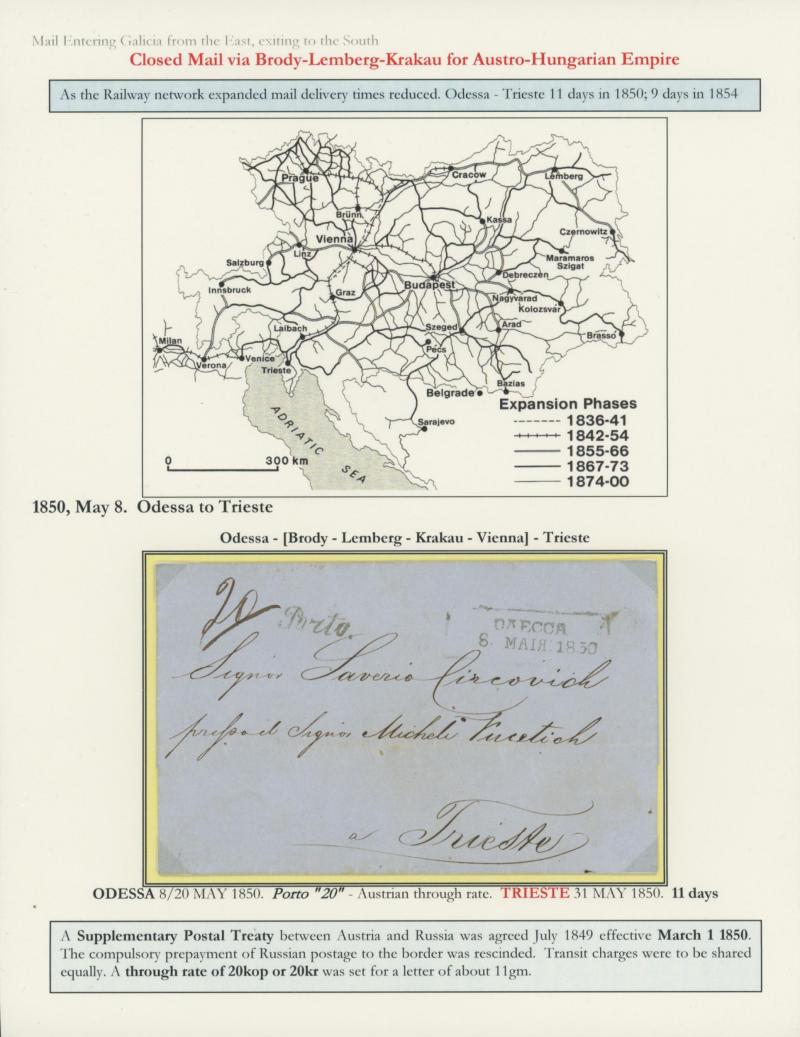 Mail Entering Galicia from the East, exiting to the South
Closed Mail via Brody-Lemberg-Krakau for Austro-Hungarian Empire
As the Railway network expanded mail delivery times reduced. Odessa - Trieste 11 days in 1850; 9 days in 1854
Prague
Cracow
Lemberg
Brünn
Kassa
Czernowitz
Vienna
Linz
Salzburg
Maramaros
Szigat
Debreczen
Innsbruck
Graz
Budapest
Nagyvarad
Kolozsvár
Laibach
Szeged
Arad
Brassó
Milan
Pécs
Verona
Venice
Trieste
Bazias
Belgrade
Sarajevo
ADRIATIC SEA
0 300 km
Expansion Phases
1836-41
1842-54
1855-66
1867-73
1874-00
1850, May 8. Odessa to Trieste
Odessa - [Brody - Lemberg - Krakau - Vienna] - Trieste
20 Porto.
ОДЕССА
8. МАІЯ. 1850
Signor Saverio Circovich
presso il Signor Micheli Vucetich
a Trieste
ODESSA 8/20 MAY 1850. Porto "20" - Austrian through rate. TRIESTE 31 MAY 1850. 11 days
A Supplementary Postal Treaty between Austria and Russia was agreed July 1849 effective March 1 1850.
The compulsory prepayment of Russian postage to the border was rescinded. Transit charges were to be shared
equally. A through rate of 20kop or 20kr was set for a letter of about 11gm.